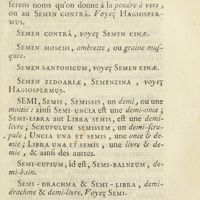 férens noms qu'on donne à la poudre à vers,
ou au SEMEN CONTRÀ. Voyez HAGIOSPER-
MUS.
SEMEN CONTRÀ, voyez SEMEN CINÆ.
SEMEN MOSCHI, ambrette, ou graine mus-
quée.
SEMEN SANTONICUM, voyez SEMEN CINÆ.
SEMEN ZEDOARIÆ, SEMENZINA, voyez
HAGIOSPERMUS.
SEMI, SEMIS, SEMISSIS, un demi, ou une
moitié: ainsi SEMI-UNCIA est une demi-once;
SEMI-LIBRA aut LIBRA SEMIS, est une demi-
livre; SCRUPULUM SEMISSEM, un demi-scru-
pule; UNCIA UNA ET SEMIS, une once & de-
mie; LIBRA UNA ET SEMIS, une livre & de-
mie, & ainsi des autres.
SEMI-CUPIUM, id est, SEMI-BALNEUM, de-
mi-bain.
SEMI-DRACHMA & SEMI-LIBRA, demi-
drachme & demi-livre. Voyez SEMI.